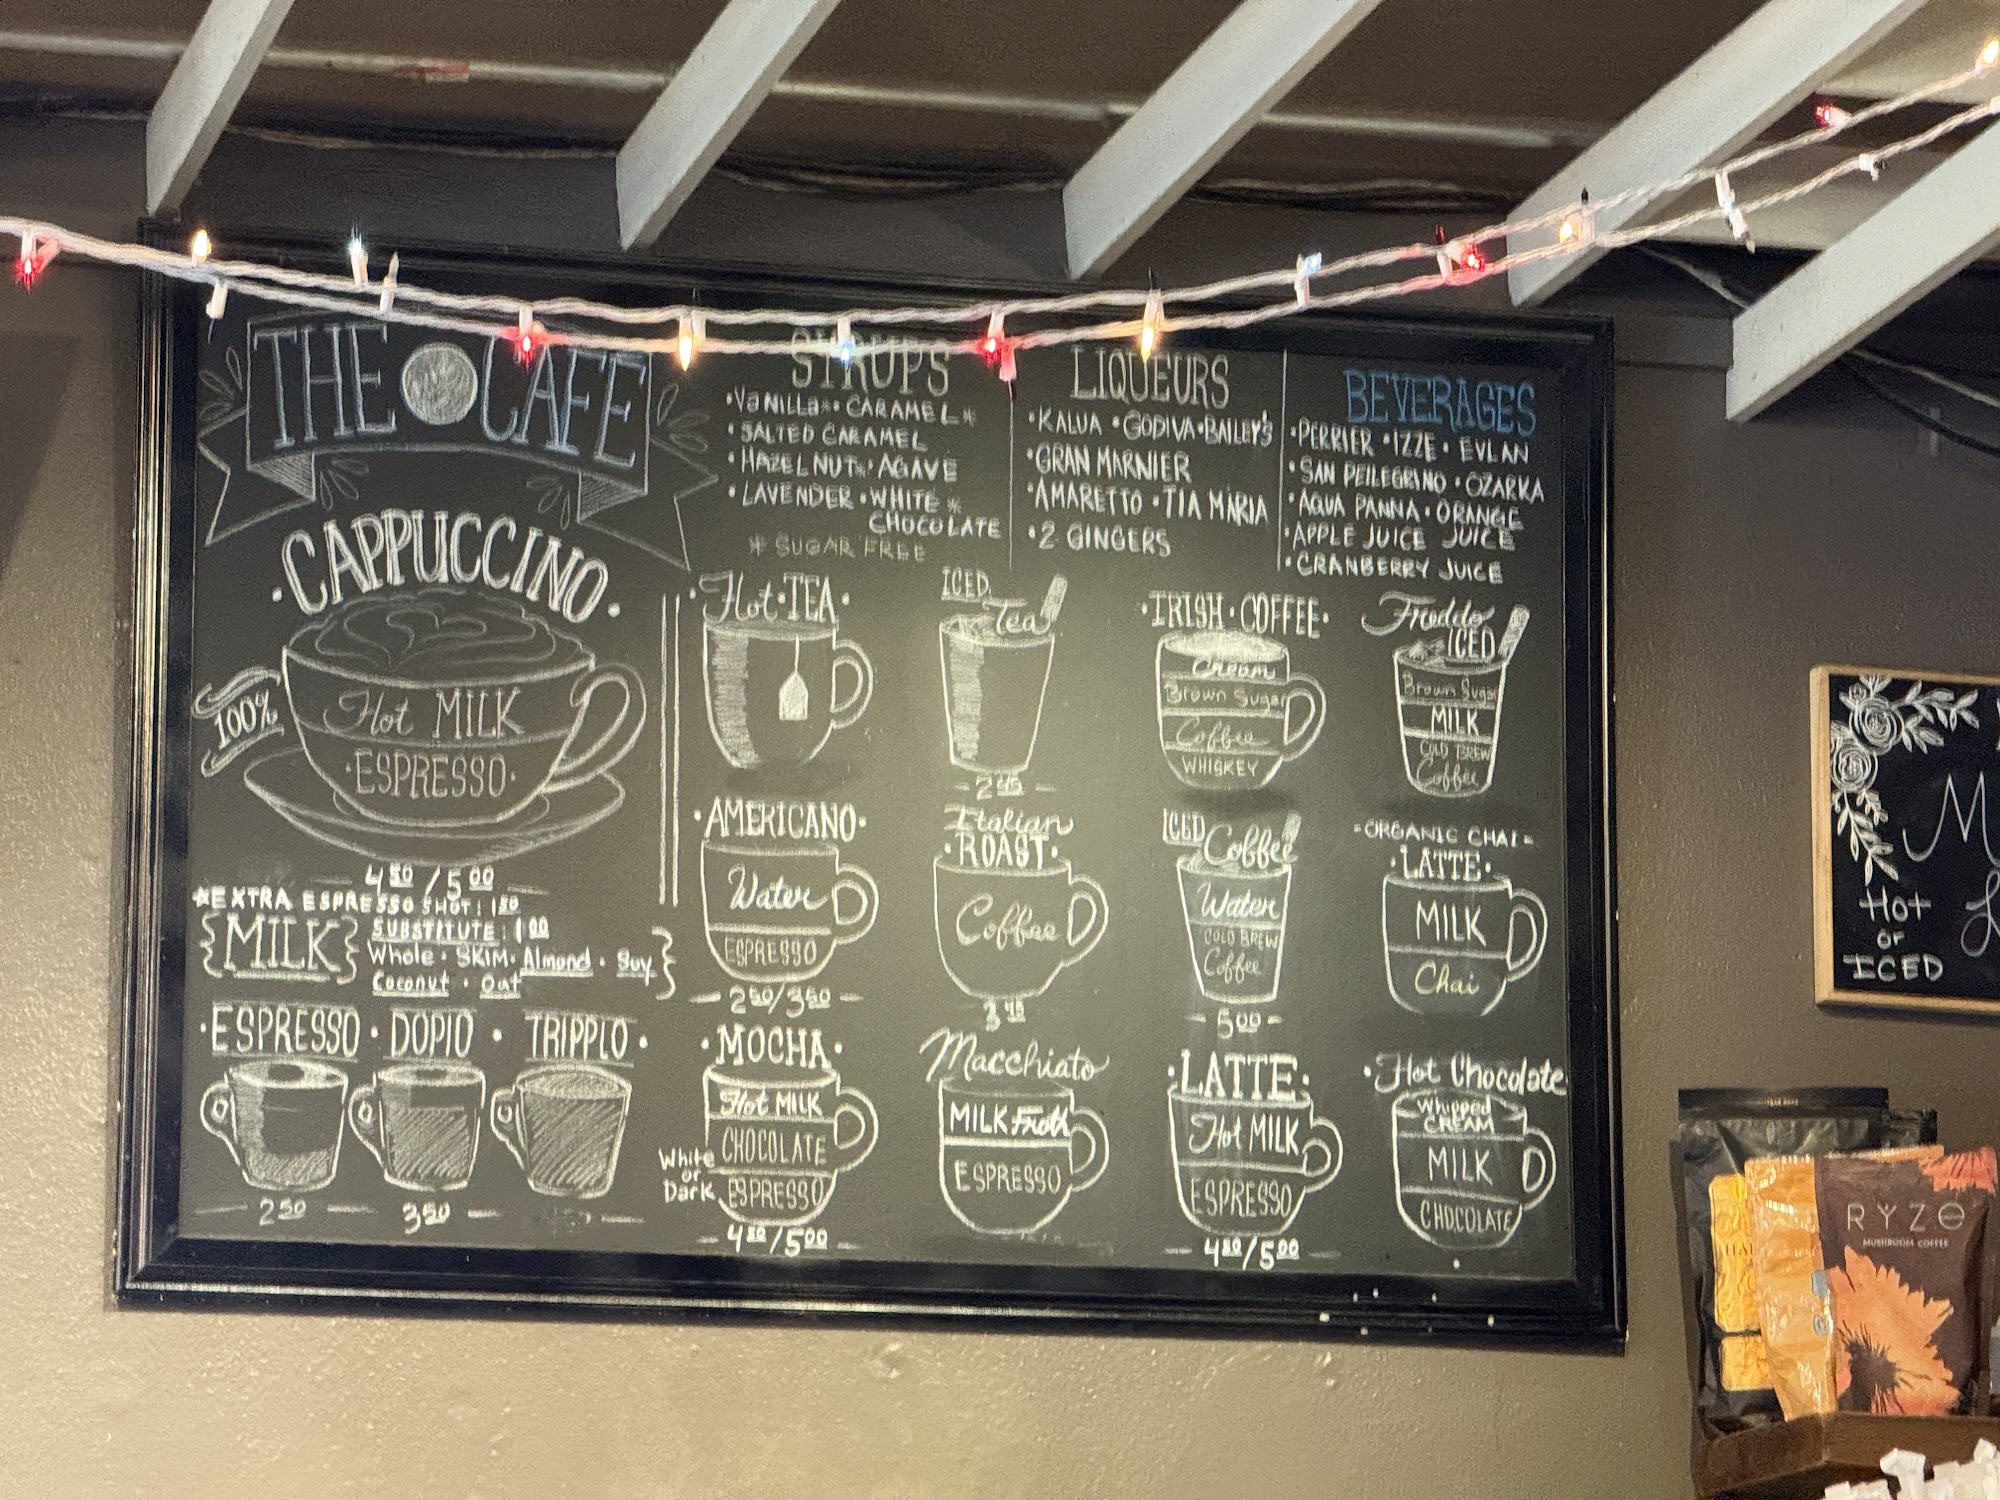 THE CAFE
CAPPUCCINO
100%
Hot MILK
ESPRESSO
4 50 / 5 00
*EXTRA ESPRESSO SHOT: 1 50
{MILK}
SUBSTITUTE: 1 00
Whole · SKIM · Almond · Soy
Coconut · Oat
· ESPRESSO · DOPIO · TRIPPLO ·
2 50
3 50
SYRUPS
· VANILLA* · CARAMEL*
· SALTED CARAMEL
· HAZELNUT* · AGAVE
· LAVENDER · WHITE *
CHOCOLATE
* SUGAR FREE
LIQUEURS
· KALUA · GODIVA · BAILEY'S
· GRAN MARNIER
· AMARETTO · TIA MARIA
· 2 GINGERS
BEVERAGES
· PERRIER · IZZE · EVIAN
· SAN PELLEGRINO · OZARKA
· AQUA PANNA · ORANGE
· APPLE JUICE JUICE
· CRANBERRY JUICE
· Hot · TEA ·
ICED
Tea
2 95
· IRISH · COFFEE ·
Cream
Brown Sugar
Coffee
WHISKEY
Freddo
ICED
Brown Sugar
MILK
COLD BREW
Coffee
· AMERICANO ·
Water
ESPRESSO
2 50 / 3 50
Italian
· ROAST ·
Coffee
3 95
ICED
Coffee
Water
COLD BREW
Coffee
5 00
- ORGANIC CHAI -
· LATTE ·
MILK
Chai
· MOCHA ·
Hot MILK
CHOCOLATE
ESPRESSO
White
or
Dark
4 50 / 5 00
Macchiato
MILK Froth
ESPRESSO
· LATTE ·
Hot MILK
ESPRESSO
4 50 / 5 00
· Hot Chocolate
Whipped
CREAM
MILK
CHOCOLATE
Hot
or
ICED
RYZE
MUSHROOM COFFEE